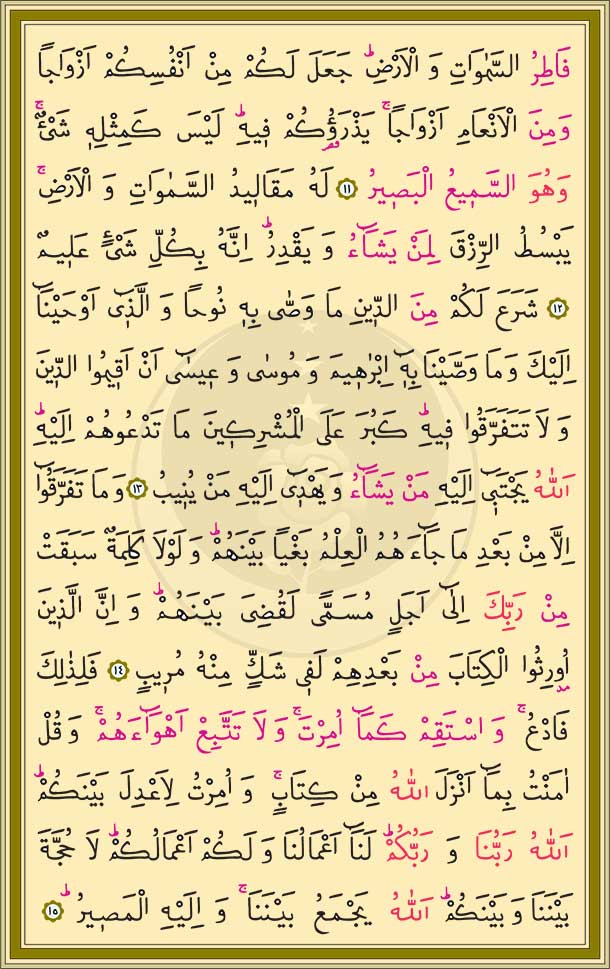 فَاطِرُ السَّمٰوَاتِ وَ الْاَرْضِۜ جَعَلَ لَكُمْ مِنْ اَنْفُسِكُمْ اَزْوَاجاً
وَمِنَ الْاَنْعَامِ اَزْوَاجاًۚ يَذْرَؤُ۬كُمْ ف۪يهِۜ لَيْسَ كَمِثْلِه۪ شَيْءٌۚ
وَهُوَ السَّم۪يعُ الْبَص۪يرُ ﴿١١﴾ لَهُ مَقَال۪يدُ السَّمٰوَاتِ وَ الْاَرْضِۚ
يَبْسُطُ الرِّزْقَ لِمَنْ يَشَٓاءُ وَ يَقْدِرُۜ اِنَّهُ بِكُلِّ شَيْءٍ عَل۪يمٌ
﴿١٢﴾ شَرَعَ لَكُمْ مِنَ الدّ۪ينِ مَا وَصّٰى بِه۪ نُوحاً وَ الَّذ۪ٓي اَوْحَيْنَٓا
اِلَيْكَ وَ مَا وَصَّيْنَا بِه۪ٓ اِبْرٰه۪يمَ وَ مُوسٰى وَ ع۪يسٰٓى اَنْ اَق۪يمُوا الدّ۪ينَ
وَ لَا تَتَفَرَّقُوا ف۪يهِۜ كَبُرَ عَلَى الْمُشْرِك۪ينَ مَا تَدْعُوهُمْ اِلَيْهِۜ
اَللّٰهُ يَجْتَب۪ٓي اِلَيْهِ مَنْ يَشَٓاءُ وَ يَهْد۪ٓي اِلَيْهِ مَنْ يُن۪يبُ ﴿١٣﴾ وَ مَا تَفَرَّقُٓوا
اِلَّا مِنْ بَعْدِ مَا جَٓاءَهُمُ الْعِلْمُ بَغْياً بَيْنَهُمْۜ وَ لَوْلَا كَلِمَةٌ سَبَقَتْ
مِنْ رَبِّكَ اِلٰٓى اَجَلٍ مُسَمًّى لَقُضِيَ بَيْنَهُمْۜ وَ اِنَّ الَّذ۪ينَ
اُو۫رِثُوا الْكِتَابَ مِنْ بَعْدِهِمْ لَف۪ي شَكٍّ مِنْهُ مُر۪يبٍ ﴿١٤﴾ فَلِذٰلِكَ
فَادْعُۚ وَ اسْتَقِمْ كَمَٓا اُمِرْتَۚ وَ لَا تَتَّبِعْ اَهْوَٓاءَهُمْۚ وَ قُلْ
اٰمَنْتُ بِمَٓا اَنْزَلَ اللّٰهُ مِنْ كِتَابٍۚ وَ اُمِرْتُ لِاَعْدِلَ بَيْنَكُمْۜ
اَللّٰهُ رَبُّنَا وَ رَبُّكُمْۜ لَنَٓا اَعْمَالُنَا وَ لَكُمْ اَعْمَالُكُمْۜ لَا حُجَّةَ
بَيْنَنَا وَ بَيْنَكُمْۜ اَللّٰهُ يَجْمَعُ بَيْنَنَاۚ وَ اِلَيْهِ الْمَص۪يرُۜ ﴿١٥﴾